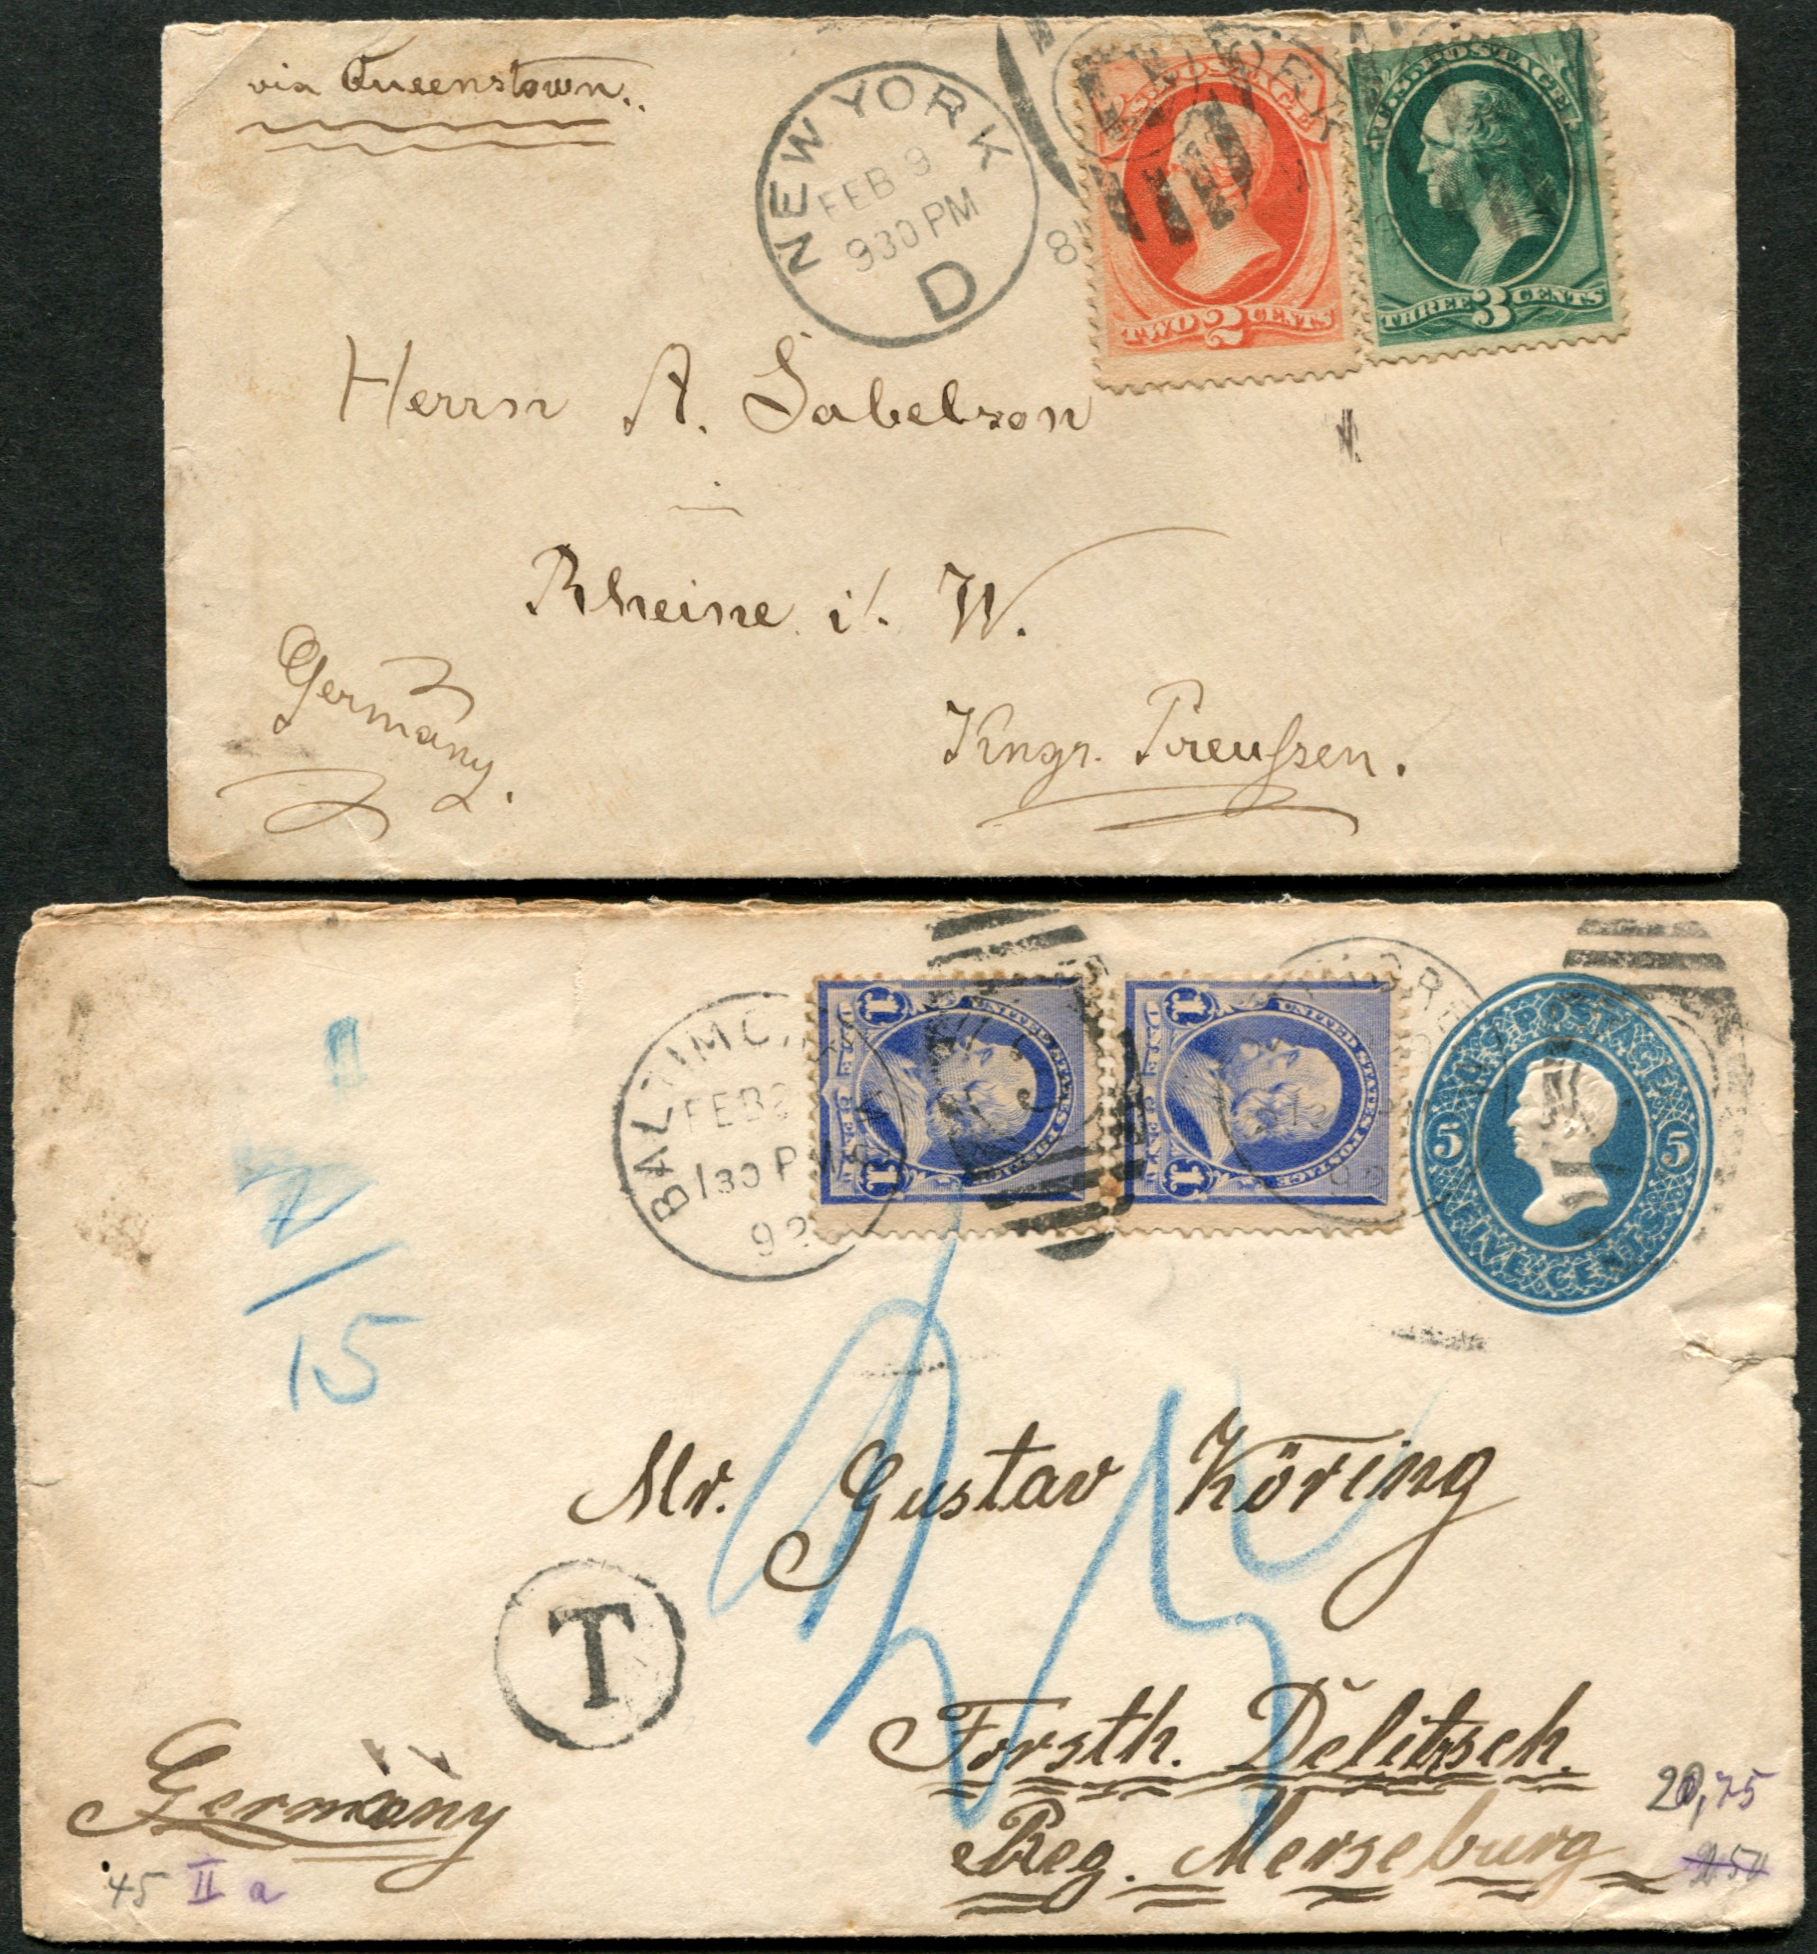 via Queenstown.
NEW YORK
FEB 9
930 PM
D
8
U.S. POSTAGE
TWO 2 CENTS
U.S. POSTAGE
THREE 3 CENTS
Herrn A. Sabelson
Rheine i/. W.
Kngr. Preußen.
Germany.
BALTIMORE
FEB 2
130 PM
92
1 1
UNITED STATES POSTAGE
1 1
UNITED STATES POSTAGE
92
U.S. POSTAGE
5 5
FIVE CENTS
15
Mr. Gustav Köring
T
Forsth. Delitzsch.
Reg. Merseburg
Germany
45 II a
20,75